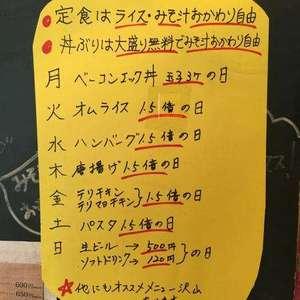 定食はライス・みそ汁おかわり自由
丼ぶりは大盛り無料でみそ汁おかわり自由
月 ベーコンエッグ丼 玉子3ヶの日
火 オムライス 1.5倍の日
水 ハンバーグ 1.5倍の日
木 唐揚げ 1.5倍の日
金 テリチキン
テリマヨチキン } 1.5倍の日
土 パスタ 1.5倍の日
日 生ビール → 500円
ソフトドリンク → 120円 } の日
☆他にもオススメメニュー沢山
600
650